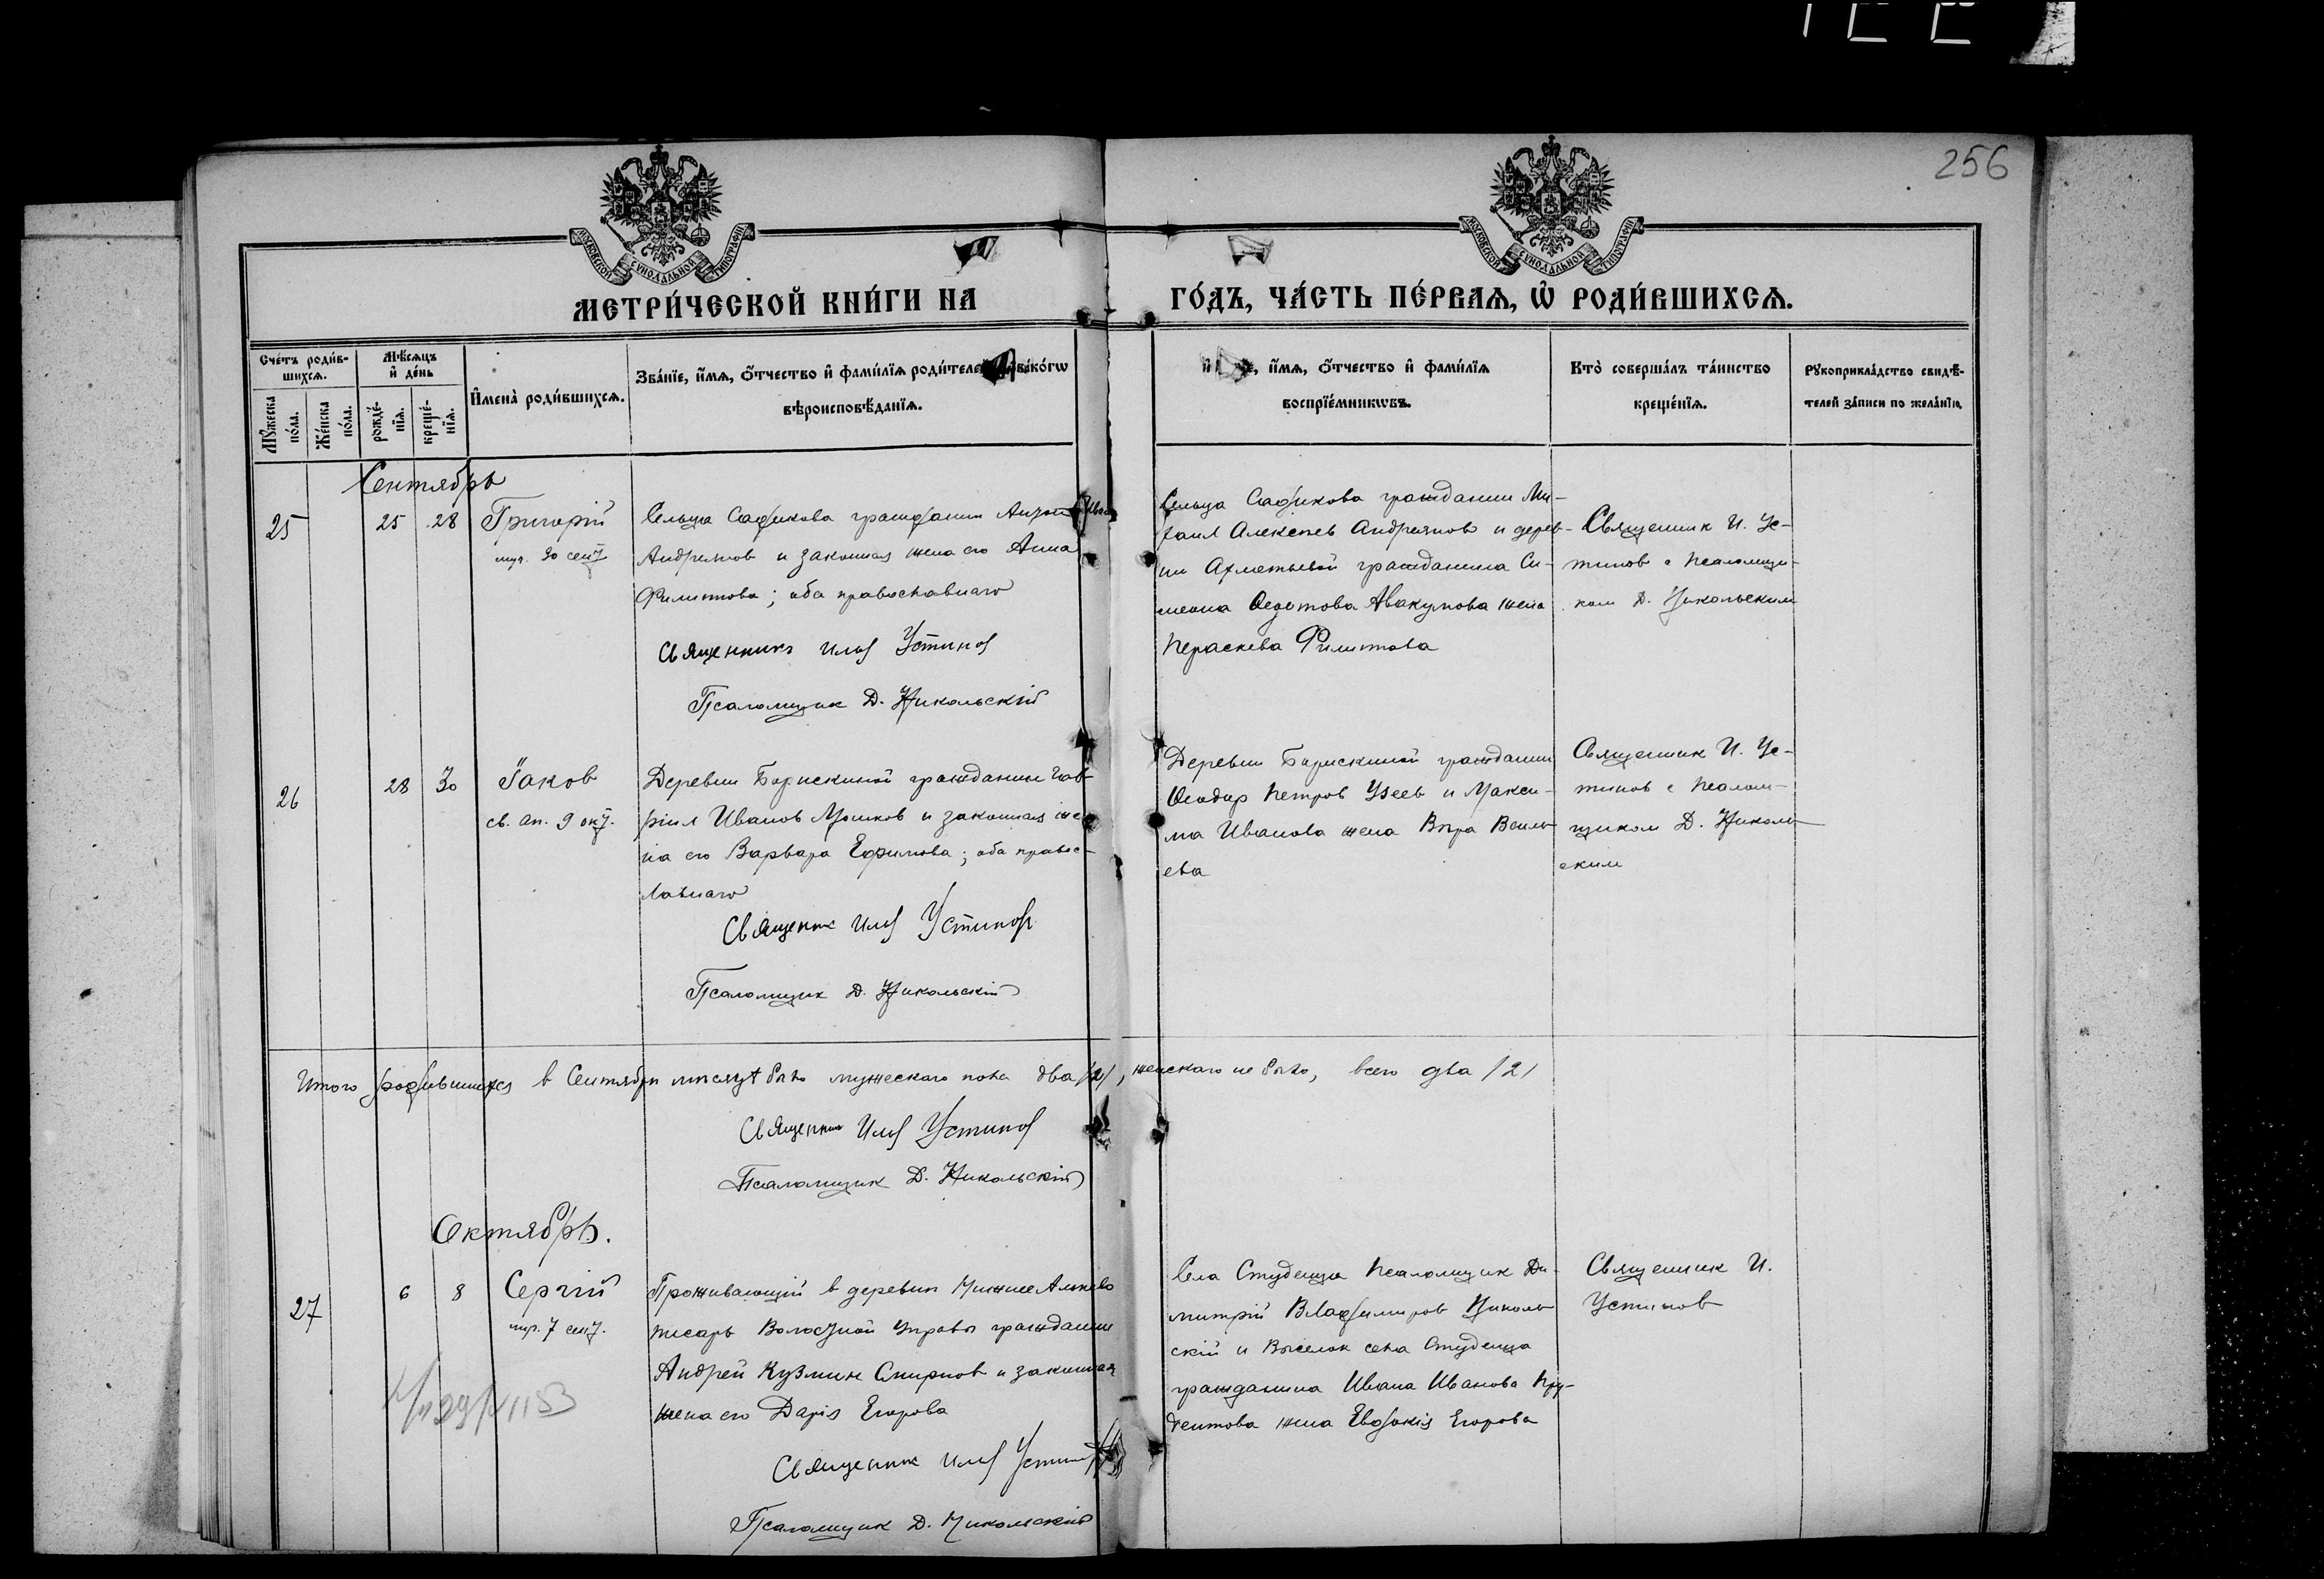 256
МОСКОВСКОЙ СУНОДАЛЬНОЙ ТИПОГРАФІИ
МОСКОВСКОЙ СУНОДАЛЬНОЙ ТИПОГРАФІИ
МЕТРИ́ЧЕСКОЙ КНИ́ГИ НА
ГО́ДЪ, ЧА́СТЬ ПЕ́РВАѦ, Ѡ҆ РОДИ́ВШИХСѦ.
Сче́тъ роди́в-
шихсѧ.
Мꙋ́жеска по́ла.
Же́нска по́ла.
Мѣ́сѧцъ
и҆ де́нь
рожде́-
нїѧ.
креще́-
нїѧ.
И҆мена̀ роди́вшихсѧ.
Зва́нїе, и҆́мѧ, ѻ҆́тчество и҆ фами́лїѧ роди́телей
вѣроисповѣ́данїѧ.
и҆́мѧ, ѻ҆́тчество и҆ фами́лїѧ
воспрїе́мникѡвъ.
Кто̀ соверша́лъ та́инство
креще́нїѧ.
Рꙋкоприкла́дство свидѣ́-
телей за́писи по жела́нїю.
Сентябрь
25
25
28
Григорій
муч. 30 сент
Сельца Садикова гражданин Антон
Андреянов и законная жена его Анна
Филиппова; оба православнаго
Священникъ Илія Устинов
Псаломщик Д. Никольскій
Сельца Садикова гражданин Ми-
хаил Алексеев Андреянов и дерев-
ни Ахметьевой гражданина Си-
меона Федотова Авакумова жена
Пераскева Филиппова
Священник И. Ус-
тинов с псаломщи-
ком Д. Никольским
26
28
30
Іаков
св. ап. 9 окт.
Деревни Борискиной гражданин Гав-
ріил Иванов Мошков и законная же
на его Варвара Ефимова; оба правос-
лавнаго
Священник Илія Устинов
Псаломщик Д. Никольскій
Деревни Борискиной гражданин
Феодор Петров Узеев и Макси-
ма Иванова жена Вѣра Василь
ева
Священник И. Ус-
тинов с псалом-
щиком Д. Николь
ским
Итого родившихся в Сентябрѣ мѣсяцѣ было мужескаго пола два /2/, женскаго не было, всего два /2/
Священник Илія Устинов
Псаломщик Д. Никольскій
Октябрь.
27
6
8
Сергій
муч. 7 окт.
Проживающій в деревнѣ Нижнее Алькево
писарь Волостной управы гражданин
Андрей Кузмин Смирнов и законная
жена его Дарія Егорова
Священник Илія Устинов
Псаломщик Д. Никольскій
Села Студенца псаломщик Ди-
митрій Владимиров Николь
скій и Выселок села Студенца
гражданина Ивана Иванова Пру-
дентова жена Евдокія Егорова
Священник И.
Устинов